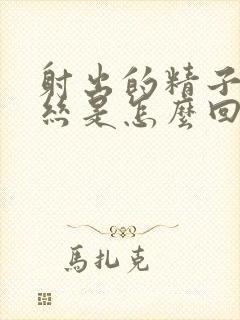 射出的精子
絲是怎麼回
馬扎克